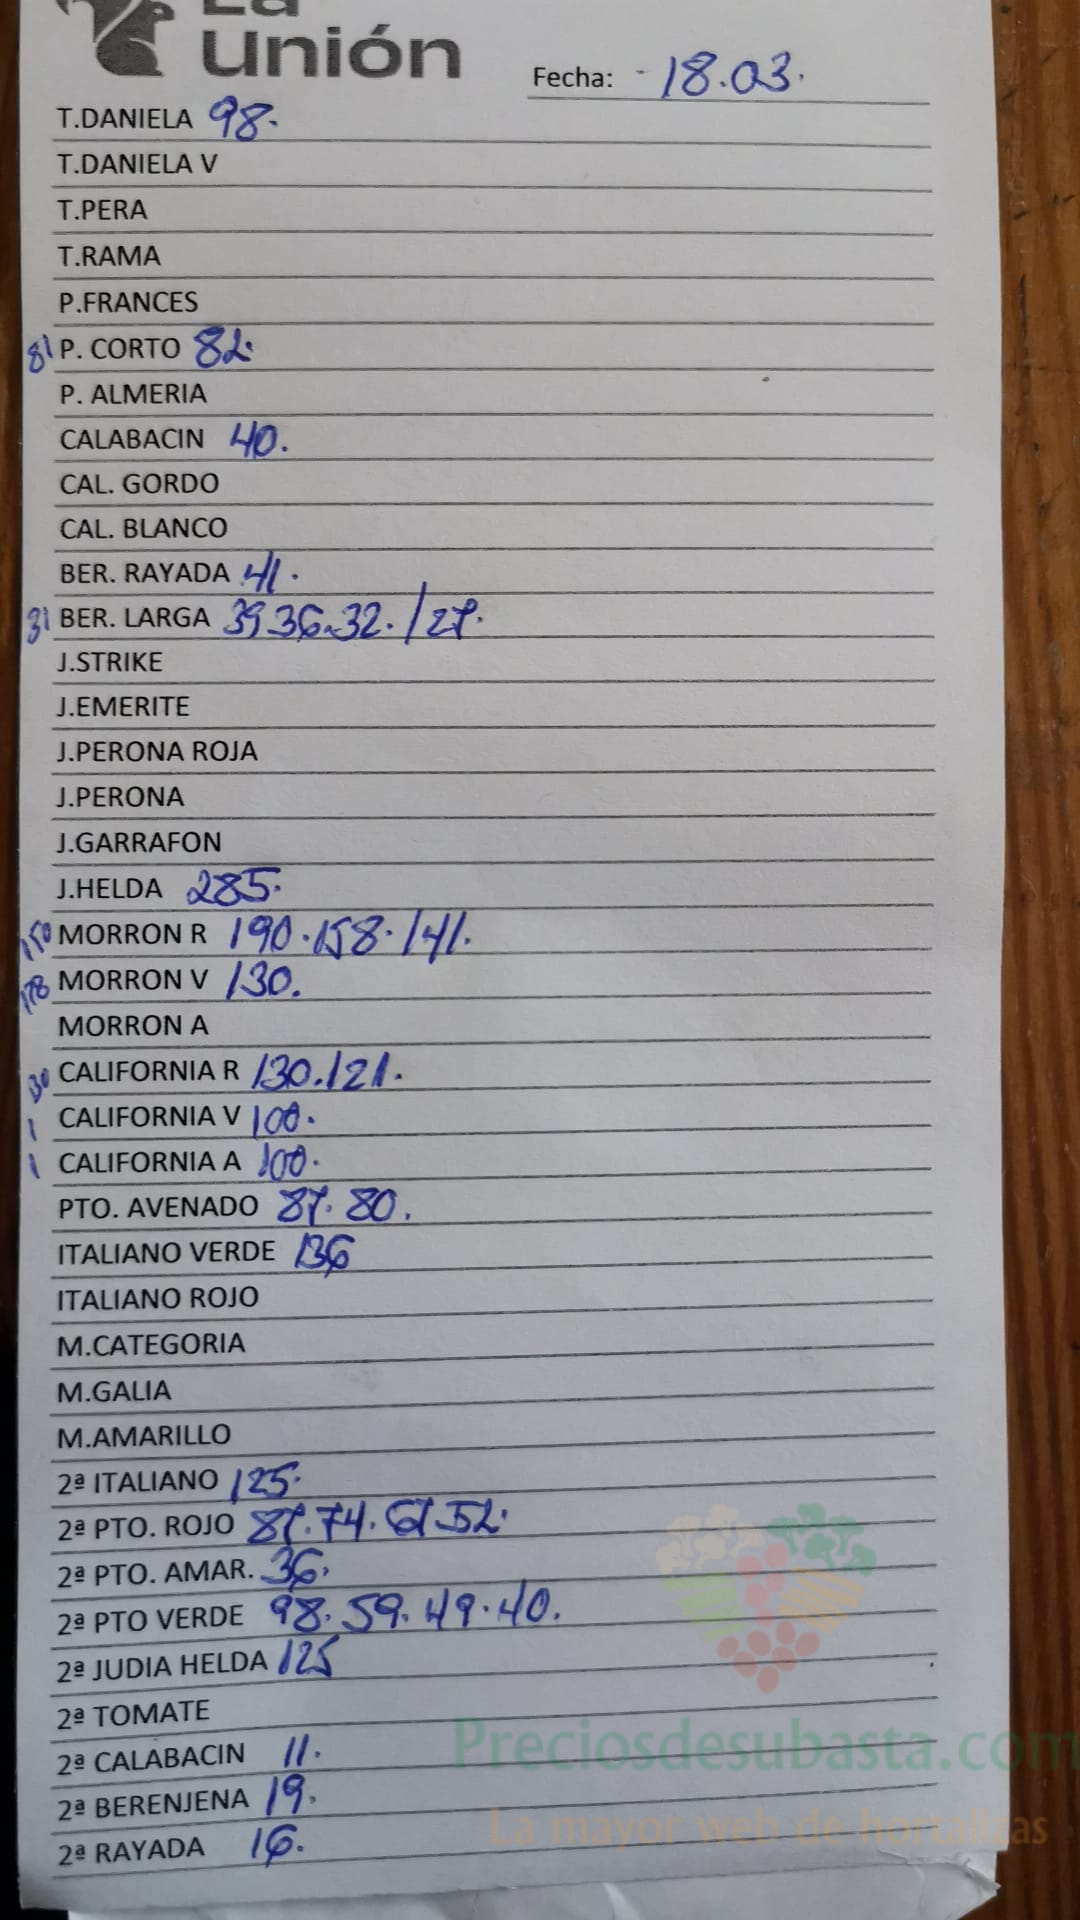 La
Unión
Fecha: -18.03.
T.DANIELA 98.
T.DANIELA V
T.PERA
T.RAMA
P.FRANCES
81 P. CORTO 82.
P. ALMERIA
CALABACIN 40.
CAL. GORDO
CAL. BLANCO
BER. RAYADA 41.
31 BER. LARGA 39 36.32. /27.
J.STRIKE
J.EMERITE
J.PERONA ROJA
J.PERONA
J.GARRAFON
J.HELDA 285.
150 MORRON R 190.158.141.
178 MORRON V 130.
MORRON A
CALIFORNIA R 130.121.
1 CALIFORNIA V 100.
1 CALIFORNIA A 100.
PTO. AVENADO 87. 80.
ITALIANO VERDE 136
ITALIANO ROJO
M.CATEGORIA
M.GALIA
M.AMARILLO
2ª ITALIANO 125.
2ª PTO. ROJO 87.74.67.52.
2ª PTO. AMAR. 36.
2ª PTO VERDE 98.59.49.40.
2ª JUDIA HELDA 125
2ª TOMATE
2ª CALABACIN 11.
2ª BERENJENA 19.
2ª RAYADA 16.
Preciosdesubasta.com
La mayor web de hortalizas